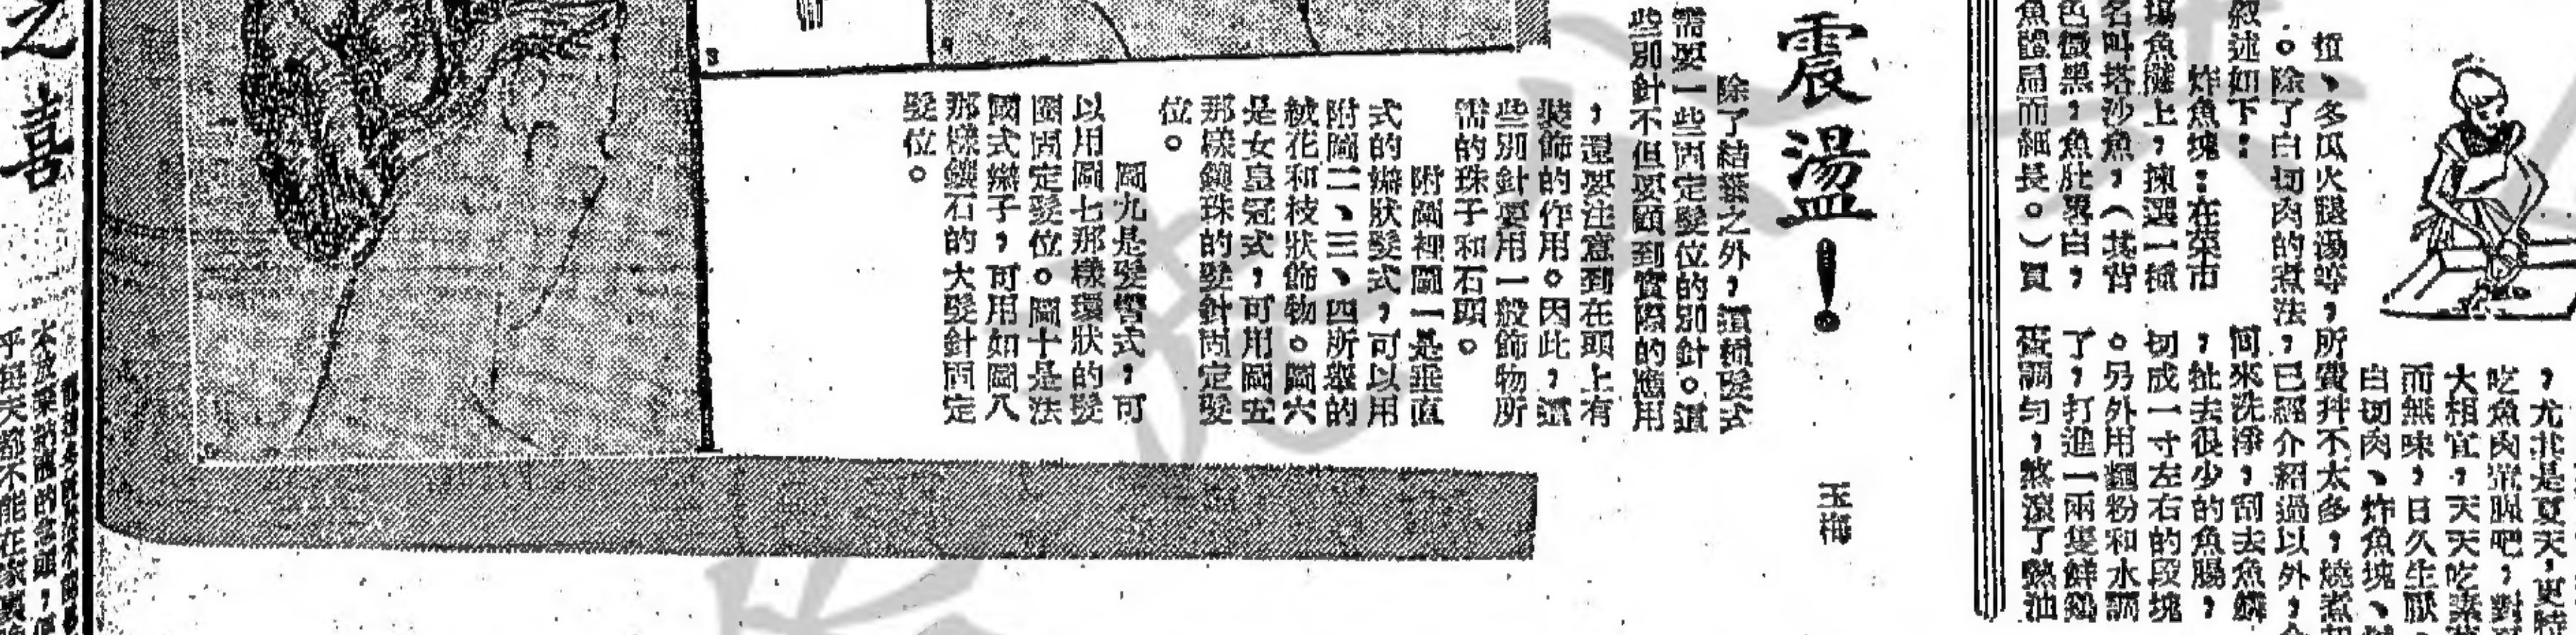 ，尤其是夏天，更特
吃魚肉葷腥吧，對
大相宜，天天吃素
而無味，日久生厭，
白切肉、炸魚塊、
瓜、冬瓜火腿湯等，所費幷不太多，燒煮
。除了白切肉的煮法，已經介紹過以外，
敘述如下：
炸魚塊：在菜市
場魚攤上，揀選一種
名叫塔沙魚，（其背
色微黑，魚肚畧白，
魚體扁而細長。）買
回來洗淨，刮去魚鱗
，扯去很少的魚腸，
切成一寸左右的段塊
。另外用麵粉和水調
了，打進一兩隻鮮鷄
蛋調勻，煞滾了熱油
震盪！
玉梅
除了結髮之外，這種髮式
需要一些固定髮位的別針。這
些別針不但要顧到實際的應用
，還要注意到在頭上有
裝飾的作用。因此，這
些別針要用一般飾物所
需的珠子和石頭。
附圖裡圖一是垂直
式的辮狀髮式，可以用
附圖二、三、四所舉的
絨花和枝狀飾物。圖六
是女皇冠式，可用圖五
那樣鑲珠的髮針固定髮
位。
圖九是髮髻式，可
以用圖七那樣環狀的髮
圈固定髮位。圖十是法
國式辮子，可用如圖八
那樣鑽石的大髮針固定
髮位。
之喜
乎每天都不能在家